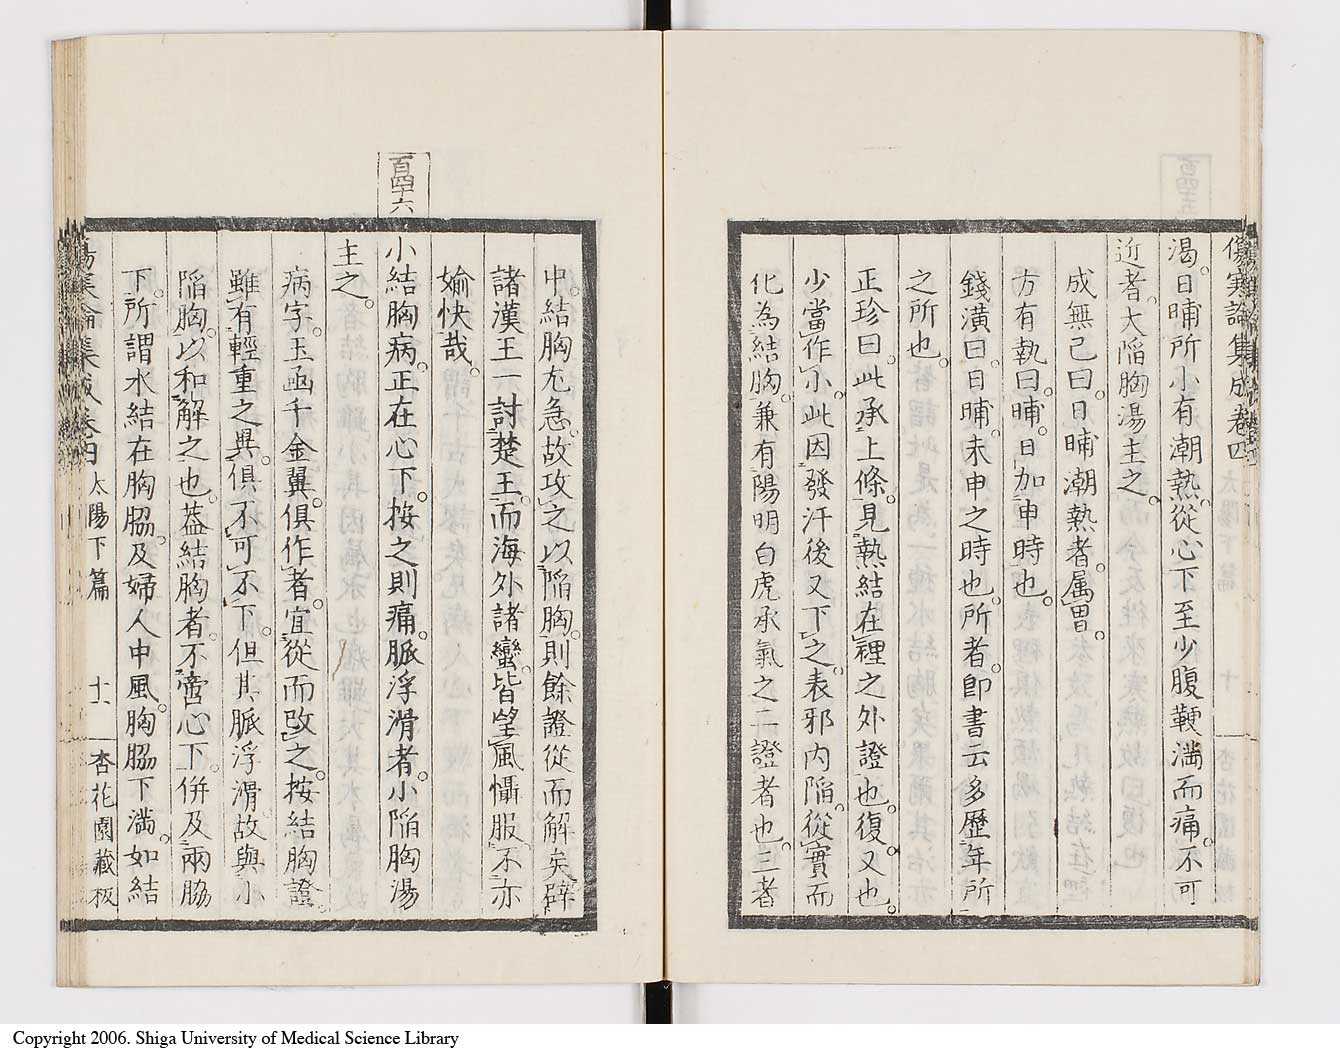 傷寒論集成卷四
渴。日晡所小有潮熱。從心下至少腹鞕滿而痛。不可
近者。大陷胸湯主之。
成無己曰。日晡潮熱者。屬胃。
方有執曰。晡。日加申時也。
錢潢曰。日晡。未申之時也。所者。卽書云多歷年所
之所也。
正珍曰。此承上條。見熱結在裡之外證也。復。又也。
少當作小。此因發汗後又下之。表邪內陷。從實而
化為結胸。兼有陽明白虎承氣之二證者也。三者
中。結胸尤急。故攻之以陷胸。則餘證從而解矣。辟
諸漢王一討楚王。而海外諸蠻。皆望風懾服。不亦
愉快哉。
百四十六
小結胸病。正在心下。按之則痛。脈浮滑者。小陷胸湯
主之。
病字。玉函千金翼。俱作者。宜從而改之。按結胸證。
雖有輕重之異。俱不可不下。但其脈浮滑。故與小
陷胸。以和解之也。葢結胸者。不啻心下。併及兩脇
下。所謂水結在胸脇。及婦人中風。胸脇下滿。如結
傷寒論集成卷四 太陽下篇 十一 杏花園藏板
Copyright 2006. Shiga University of Medical Science Library